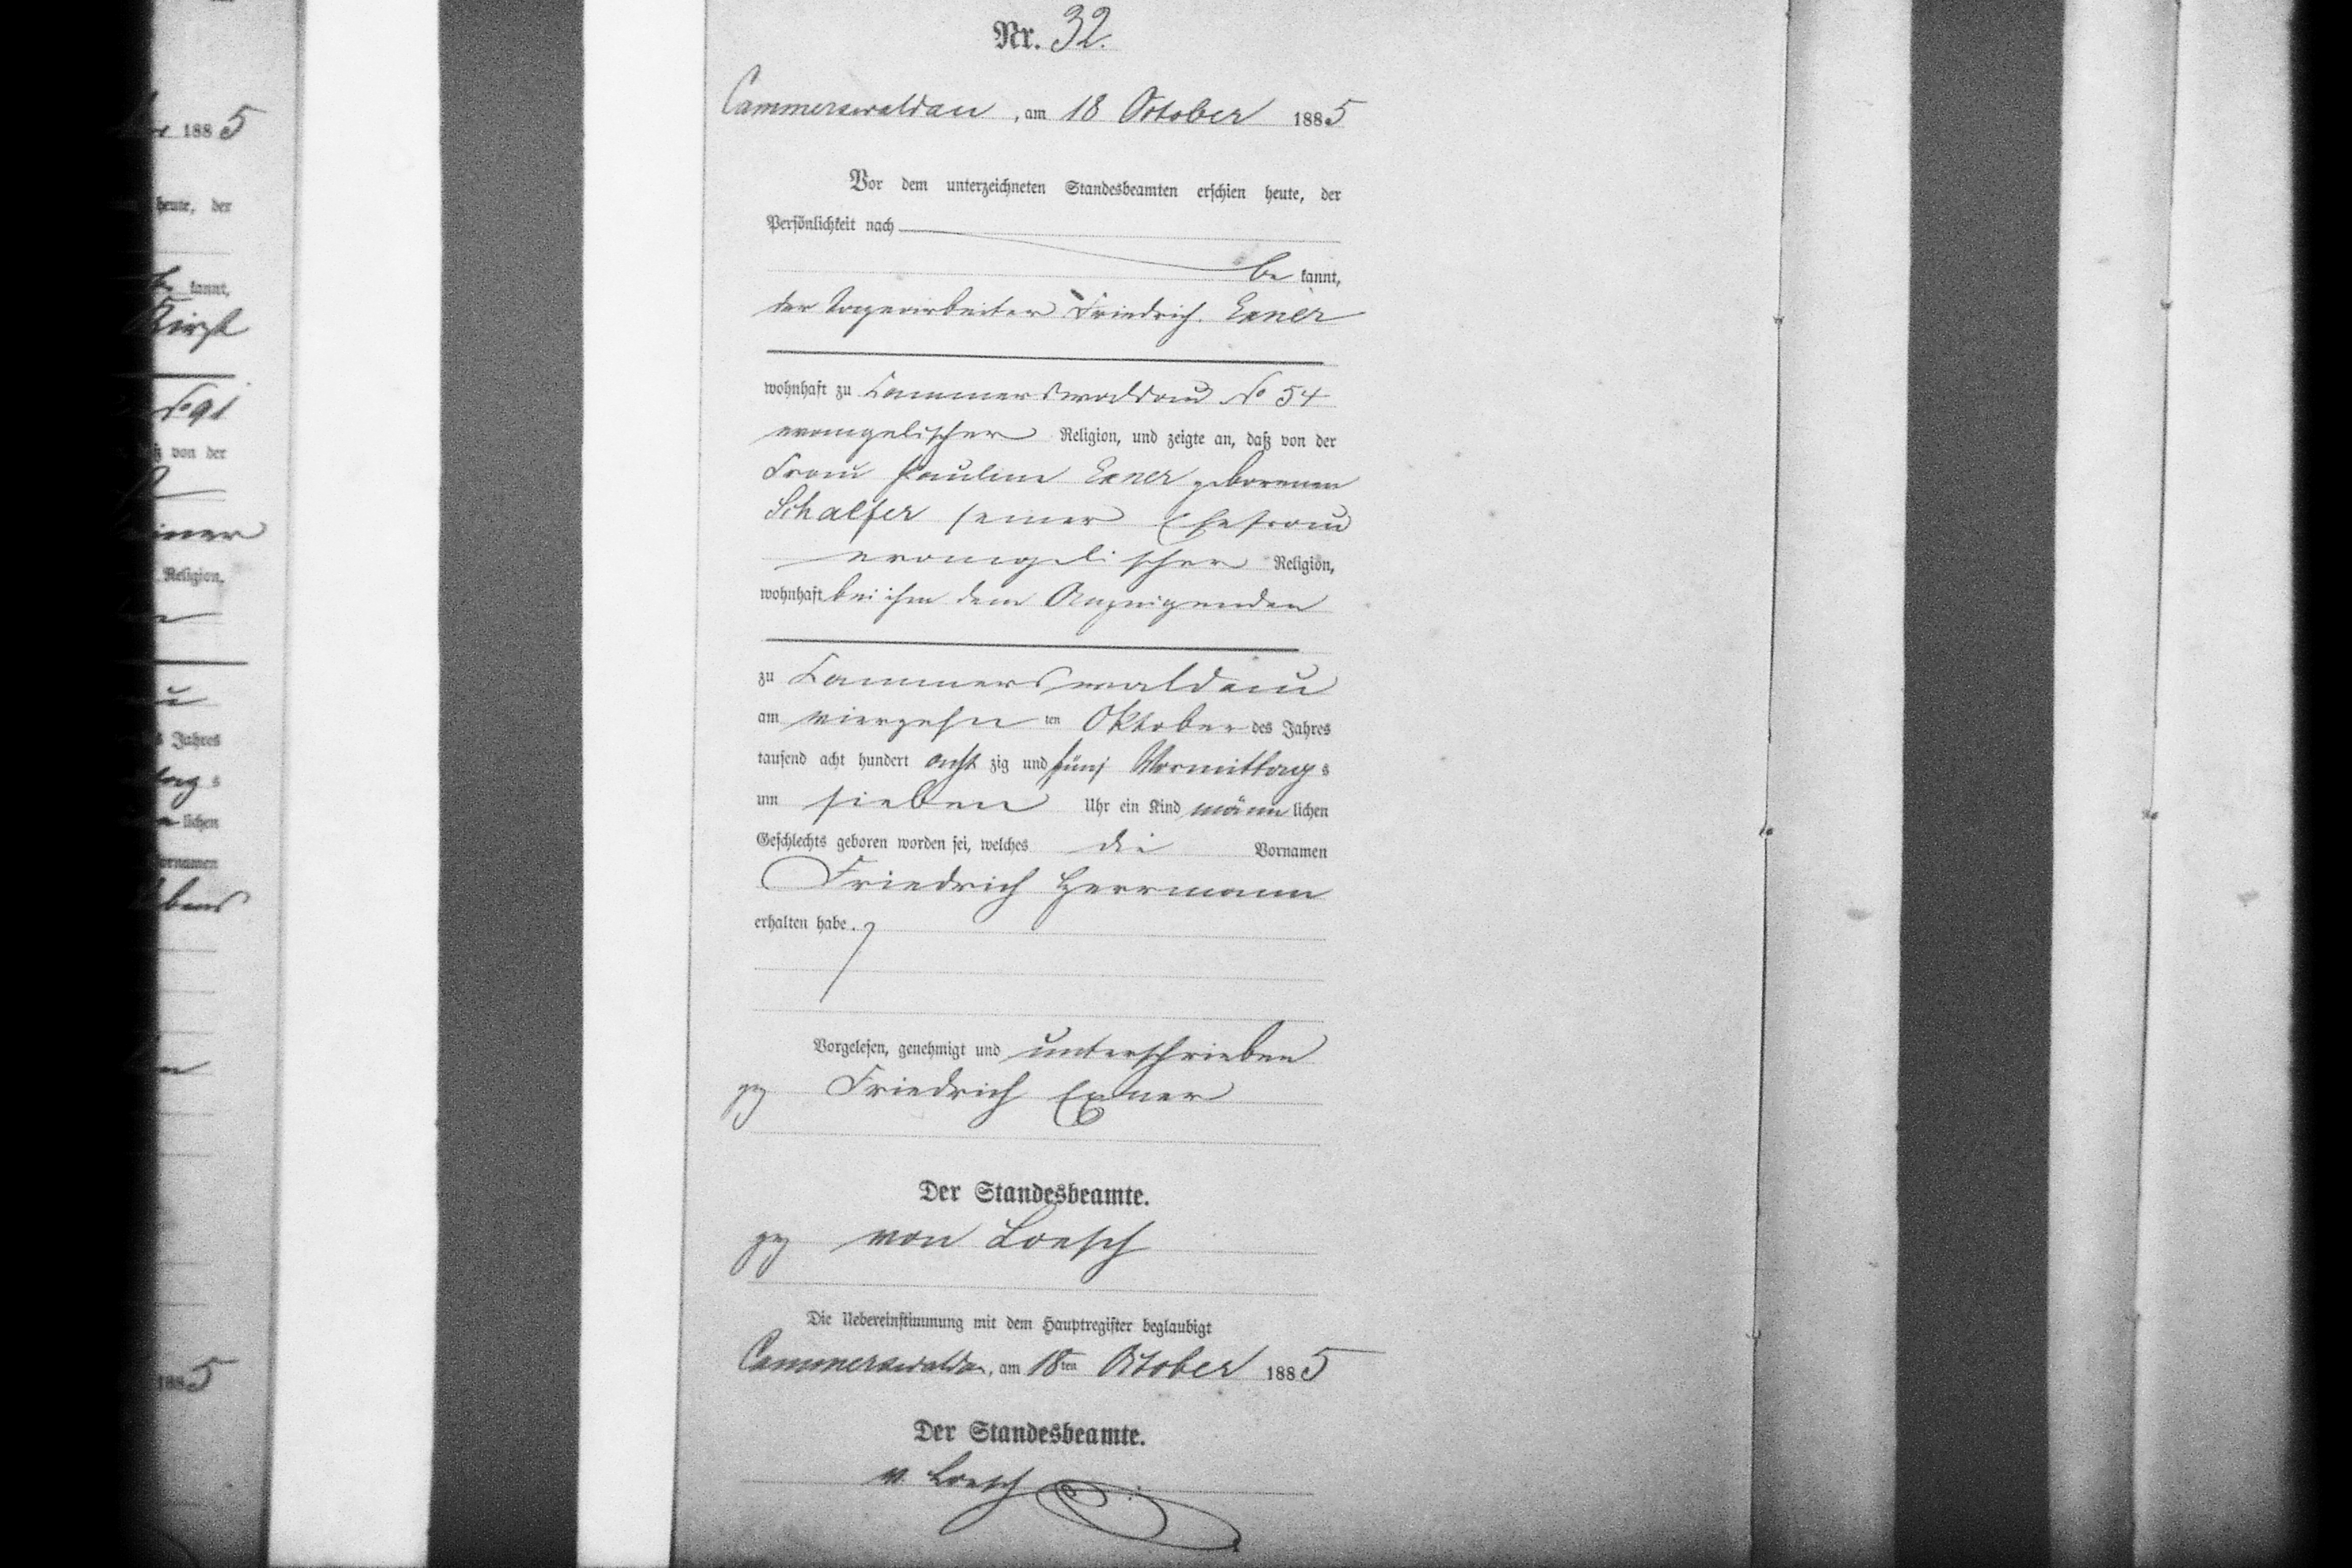 Nr. 32.
Cammerswaldau, am 18 October 1885
Vor dem unterzeichneten Standesbeamten erschien heute, der
Persönlichkeit nach
be kannt,
der Tagearbeiter Friedrich Exner
wohnhaft zu Cammerswaldau No 54
evangelischer Religion, und zeigte an, daß von der
Frau Pauline Exner geborenen
Schalfer seiner Ehefrau
evangelischer Religion,
wohnhaft bei ihm dem Anzeigenden
zu Cammerswaldau
am vierzehn ten Oktober des Jahres
tausend acht hundert acht zig und fünf Vormittags
um sieben Uhr ein Kind männ lichen
Geschlechts geboren worden sei, welches die Vornamen
Friedrich Herrmann
erhalten habe.
Vorgelesen, genehmigt und unterschrieben
gez Friedrich Exner
Der Standesbeamte.
gez von Loesch
Die Uebereinstimmung mit dem Hauptregister beglaubigt
Cammerswaldau, am 18ten October 1885
Der Standesbeamte.
v. Loesch
188 5
heute, der
kannt,
No 91
von der
Religion,
Jahres
lichen
1885